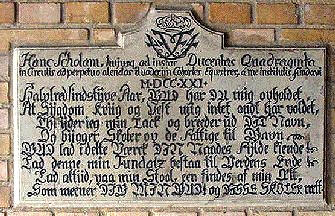 Hanc Scholam, hujusq ad instar Ducentas Quadraginta
in Circulis ad perpetuo alendas Cohortes Equestres, a me institutis fundavi
M.DCC.XXI.
Halvfierdsindstyve Aar, GUD har DU mig opholdet
At Sygdom, Krig og Pest mig intet ondt har voldet
Thi yder jeg min Tack og breder ud DIT Navn,
Og bygger Skoler op de Fattige til Gavn
GUD lad i dette Værck DIN Naades Fylde kiende
Lad denne min Fundatz bestaa til Verdens Ende
Lad altid paa min Stool een findes af min Ætt,
Som meener DIG MIN GUD! og DISSE SKOLER rett